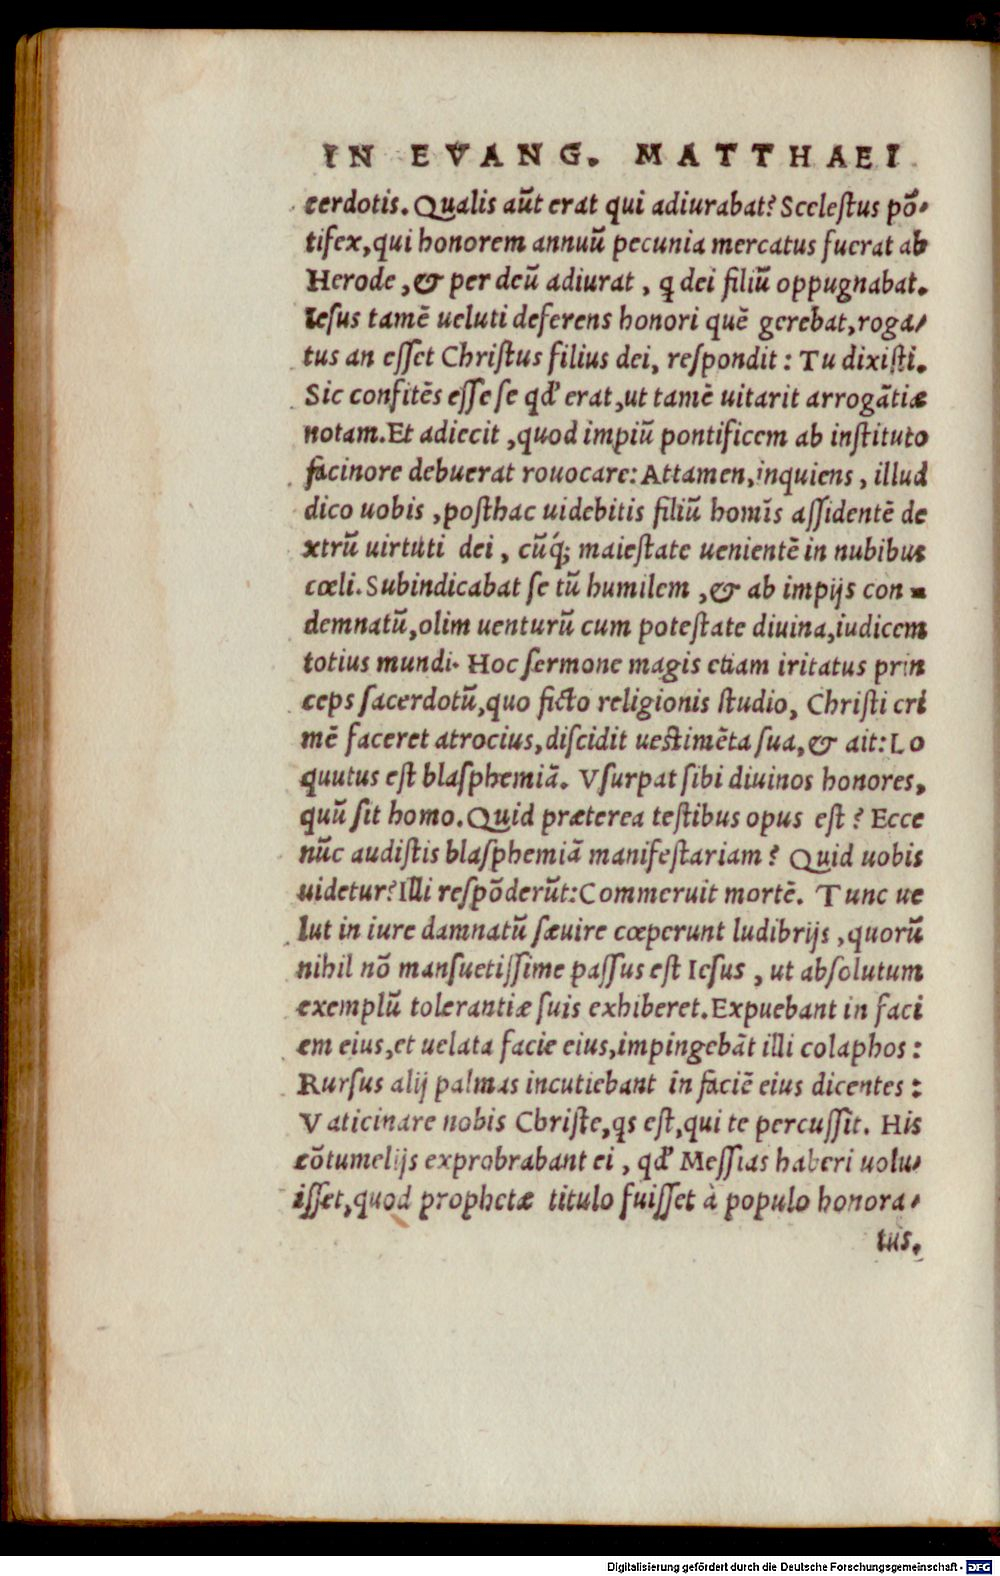 IN EVANG. MATTHAEI
cerdotis. Qualis aūt erat qui adiurabat? Scelestus põ-
tifex, qui honorem annuū pecunia mercatus fuerat ab
Herode, & per deū adiurat, q̨ dei filiū oppugnabat.
Iesus tamē ueluti deferens honori quē gerebat, roga-
tus an esset Christus filius dei, respondit: Tu dixisti.
Sic confitēs esse se qđ erat, ut tamē uitarit arrogãtiæ
notam. Et adiecit, quod impiū pontificem ab instituto
facinore debuerat rouocare: Attamen, inquiens, illud
dico uobis, posthac uidebitis filiū homīs assidentē de
xtrū uirtuti dei, cūq́; maiestate uenientē in nubibus
cœli. Subindicabat se tū humilem, & ab impijs con-
demnatū, olim uenturū cum potestate diuina, iudicem
totius mundi. Hoc sermone magis etiam iritatus prin
ceps sacerdotū, quo ficto religionis studio, Christi cri
mē faceret atrocius, discidit uestimēta sua, & ait: Lo
quutus est blasphemiã. Vsurpat sibi diuinos honores,
quū sit homo. Quid præterea testibus opus est? Ecce
nūc audistis blasphemiã manifestariam? Quid uobis
uidetur? Illi respõderūt: Commeruit mortē. Tunc ue
lut in iure damnatū sæuire cœperunt ludibrijs, quorū
nihil nõ mansuetissime passus est Iesus, ut absolutum
exemplū tolerantiæ suis exhiberet. Expuebant in faci
em eius, et uelata facie eius, impingebãt illi colaphos:
Rursus alij palmas incutiebant in faciē eius dicentes:
Vaticinare nobis Christe, qs est, qui te percussit. His
cõtumelijs exprobrabant ei, qđ Messias haberi uolu-
isset, quod prophetæ titulo fuisset à populo honora-
tus.
Digitalisierung gefördert durch die Deutsche Forschungsgemeinschaft - DFG